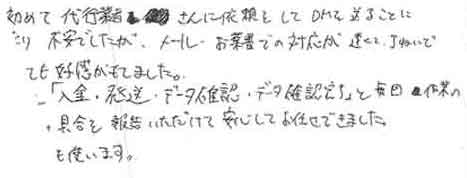 初めて代行業者さんに依頼をしてDMを送ることに
なり不安でしたが、メール・お葉書での対応が速く、丁ねいで
ても好感がもてました。
「入金・発送・データ確認・データ確認完了」と毎回作業の
具合を報告いただけて安心してお任せできました
も使います。